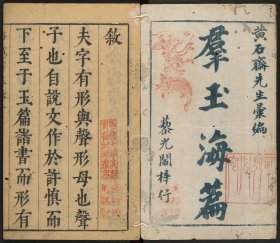 黃石齋先生彙編
羣玉海篇
藜光閣梓行
敘
夫字有形與聲形母也聲
子也自說文作於許慎而
下至于玉篇諸書而形有